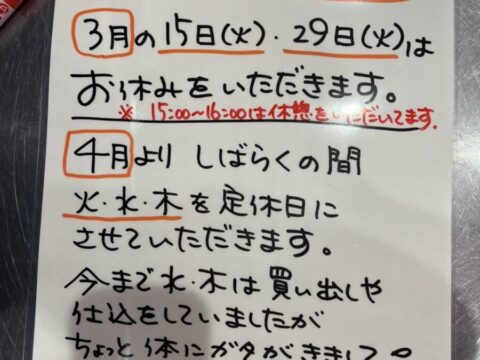 3月の15日(火)・29日(火)は
お休みをいただきます。
※ 15:00~16:00は休憩をいただいてます.
4月より しばらくの間
火・水・木を定休日に
させていただきます。
今まで水・木は買い出しや
仕込をしていましたが
ちょっと体にガタがきまして。